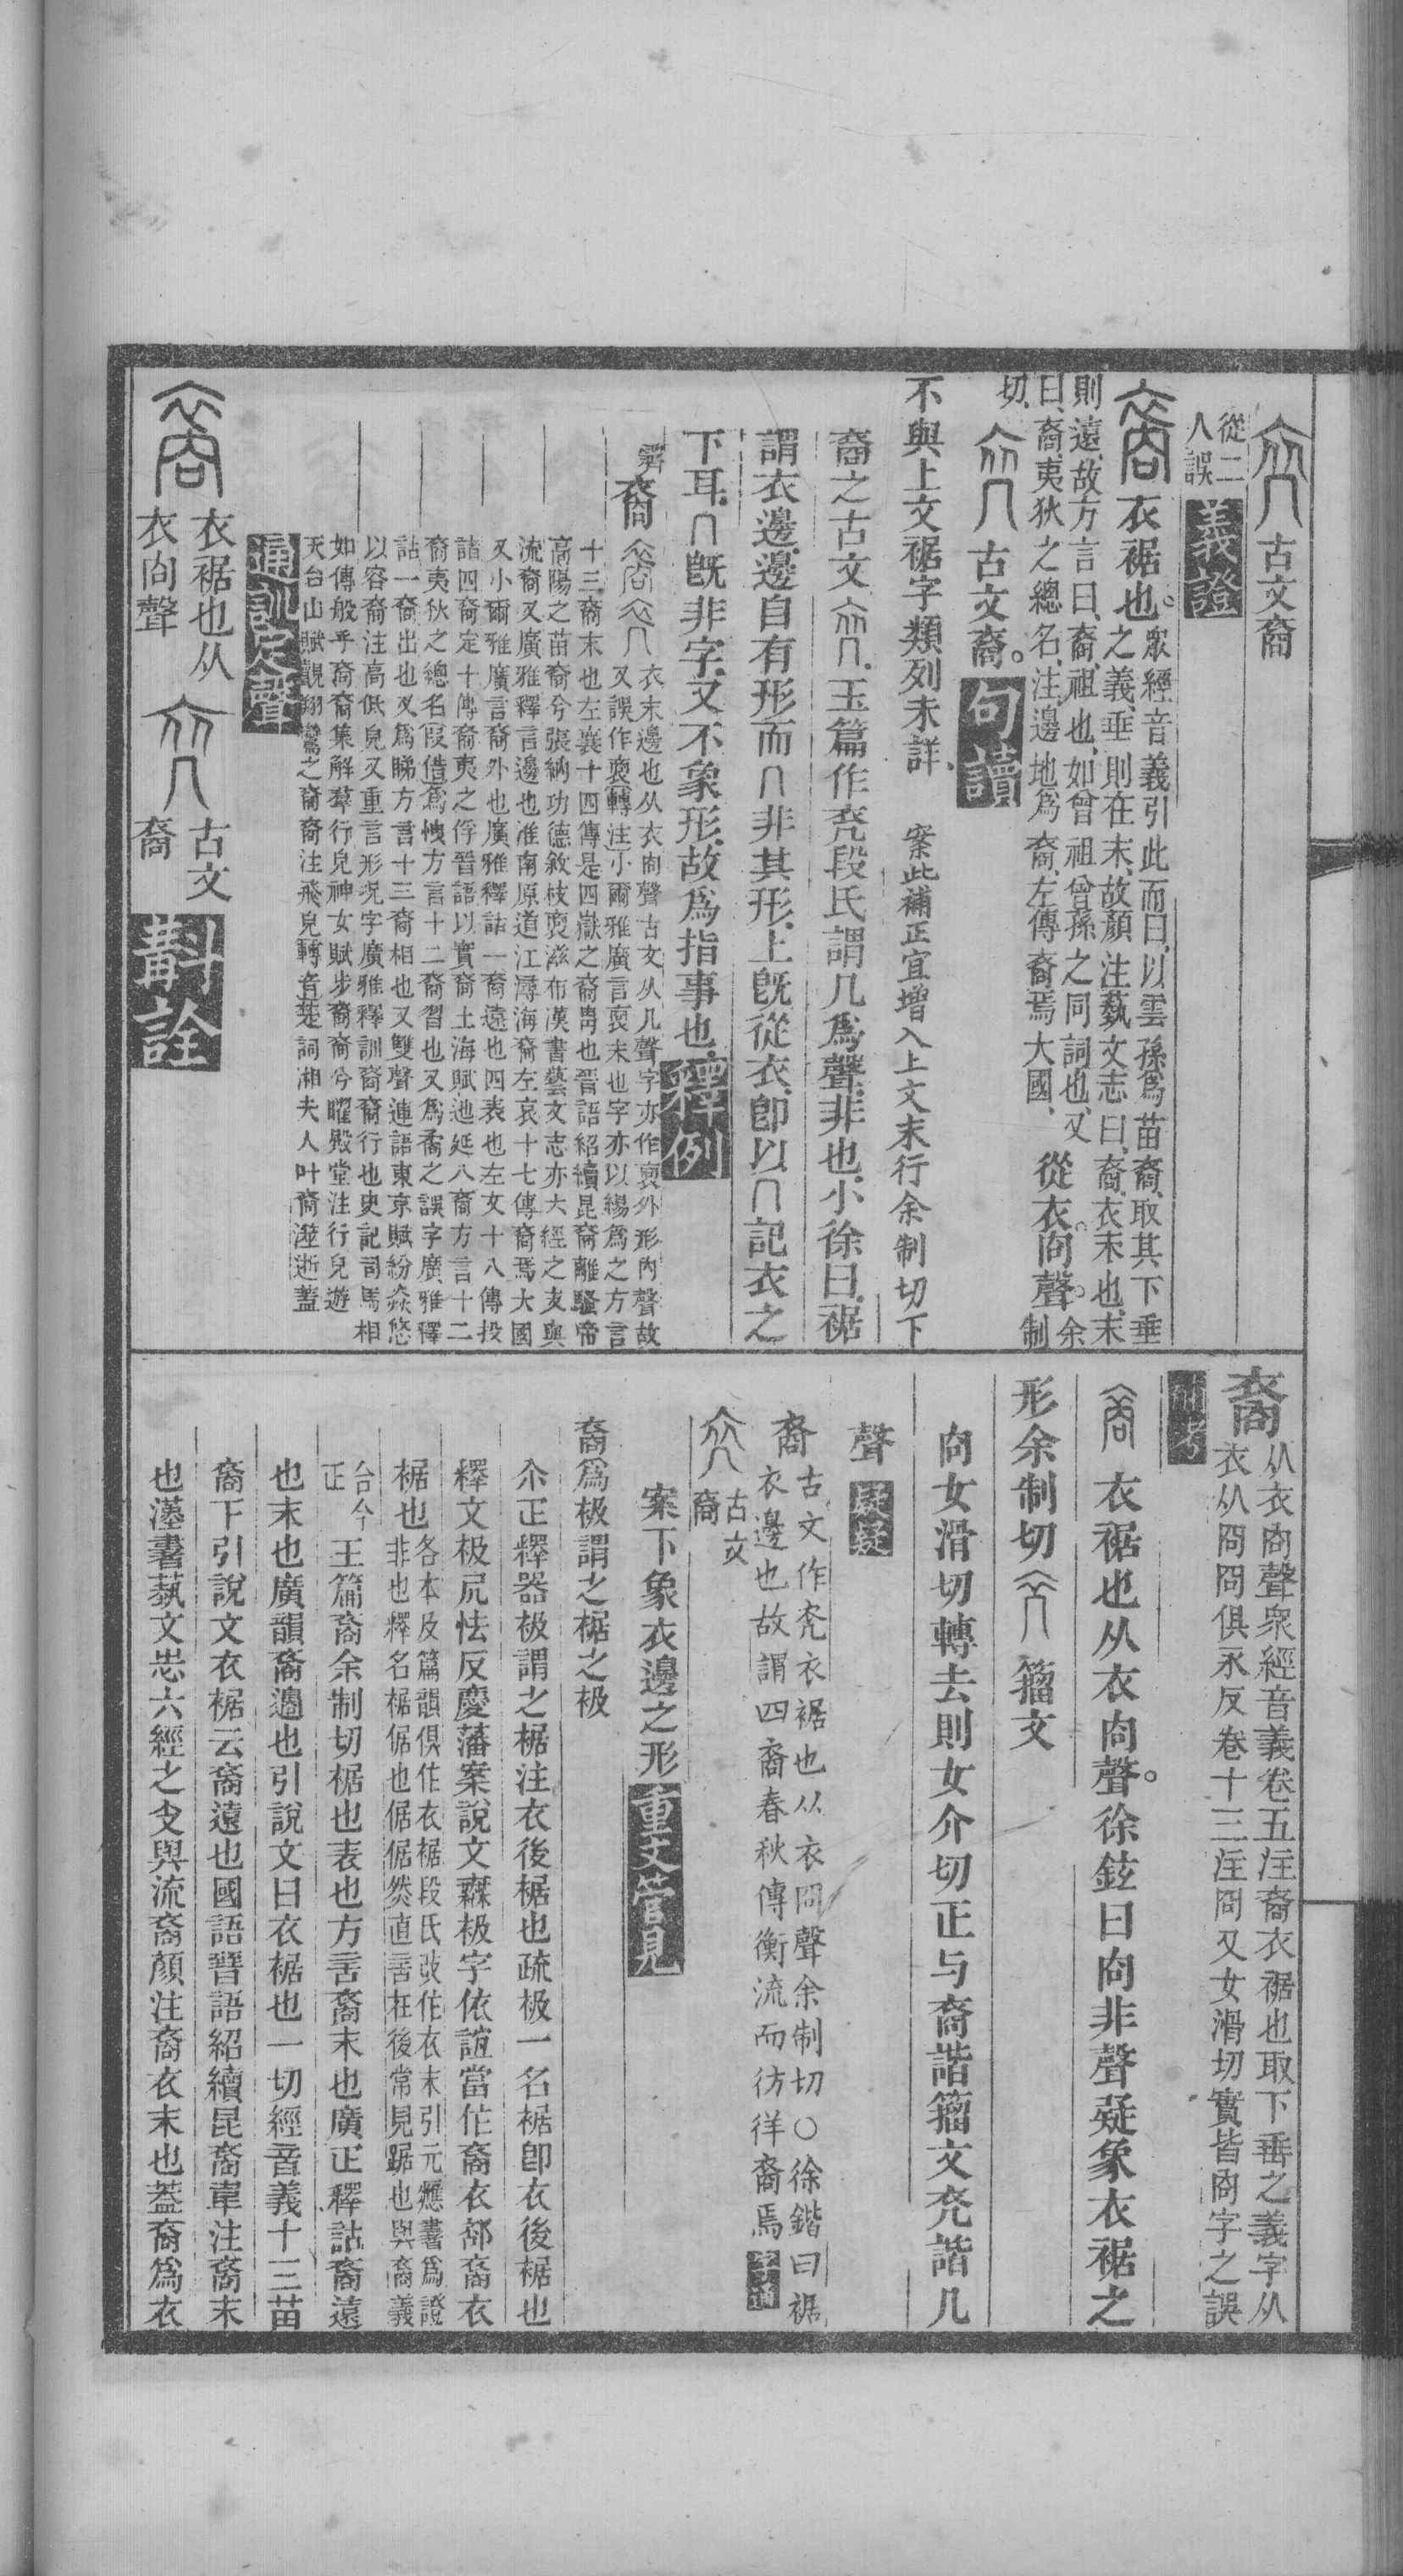 古文裔
從二
人誤
義證
衣裾也。
衆經音義引此而曰、以雲孫爲苗裔、取其下垂
之義、垂則在末、故顏注蓺文志曰、裔、衣末也、末
則遠、故方言曰、裔、祖也、如曾祖曾孫之同詞也、又
曰、裔、夷狄之總名、注、邊地爲裔、左傳裔焉大國、
從衣。㕯聲。
余制
切、
古文裔。
句讀
不與上文裾字類列未詳、
案此補正宜增入上文末行余制切下
裔之古文、玉篇作㐮段氏謂几爲聲、非也、小徐曰、裾
謂衣邊、邊自有形、而冂非其形、上既從衣、卽以冂記衣之
下耳、冂既非字、又不象形、故爲指事也、
釋例
裔
衣末邊也从衣㕯聲古文从几聲字亦作㐮外形內聲故
又誤作㐮轉注小爾雅廣言㐮末也字亦以緆爲之方言
十三裔末也左襄十四傳是四嶽之裔冑也晉語紹續昆裔離騷帝
高陽之苗裔兮張納功德敘枝㐮滋布漢書藝文志亦六經之支與
流裔又廣雅釋言邊也淮南原道江潯海裔左哀十七傳裔焉大國
又小爾雅廣言裔外也廣雅釋詁一裔遠也四表也左文十八傳投
諸四裔定十傳裔夷之俘晉語以實裔土海賦迆延八裔方言十二
裔夷狄之總名叚借爲愧方言十二裔習也又爲矞之誤字廣雅釋
詁一裔出也又爲睇方言十三裔相也又雙聲連語東京賦紛焱悠
以容裔注高低皃又重言形況字廣雅釋訓裔裔行也史記司馬相
如傳般乎裔裔集解羣行皃神女賦步裔裔兮曜殿堂注行皃遊
天台山賦覿翔鸞之裔裔注飛皃轉音楚詞湘夫人叶裔澨逝蓋
通訓定聲
衣裾也从
衣㕯聲
古文
裔
斠詮
裔
从衣㕯聲衆經音義卷五注裔衣裾也取下垂之義字从
衣从冏冏俱永反卷十三注冏又女滑切實皆㕯字之誤
衣裾也从衣㕯聲。徐鉉曰㕯非聲疑象衣裾之
形余制切
籀文
㕯女滑切轉去則女介切正与裔諧籀文㐮諧几
聲
疑疑
裔
古文作㐮衣裾也从衣冏聲余制切○徐鍇曰裾
衣邊也故謂四裔春秋傳衡流而彷徉裔焉
古文
裔
案下象衣邊之形
重文管見
裔爲极謂之裾之极
尒疋釋器极謂之裾注衣後裾也疏极一名裾卽衣後裾也
釋文极凥怯反慶藩案說文霖极字依誼當作裔衣部裔衣
裾也
各本及篇韻俱作衣裾段氏攷作衣末引元應書爲證
非也釋名裾倨也倨倨然直言在後常見踞也與裔義
合今
正
玉篇裔余制切裾也表也方言裔末也廣疋釋詁裔遠
也末也廣韻裔邊也引說文曰衣裾也一切經音義十三苗
裔下引說文衣裾云裔遠也國語晉語紹續昆裔韋注裔末
也漢書蓺文志六經之支與流裔顏注裔衣末也蓋裔爲衣